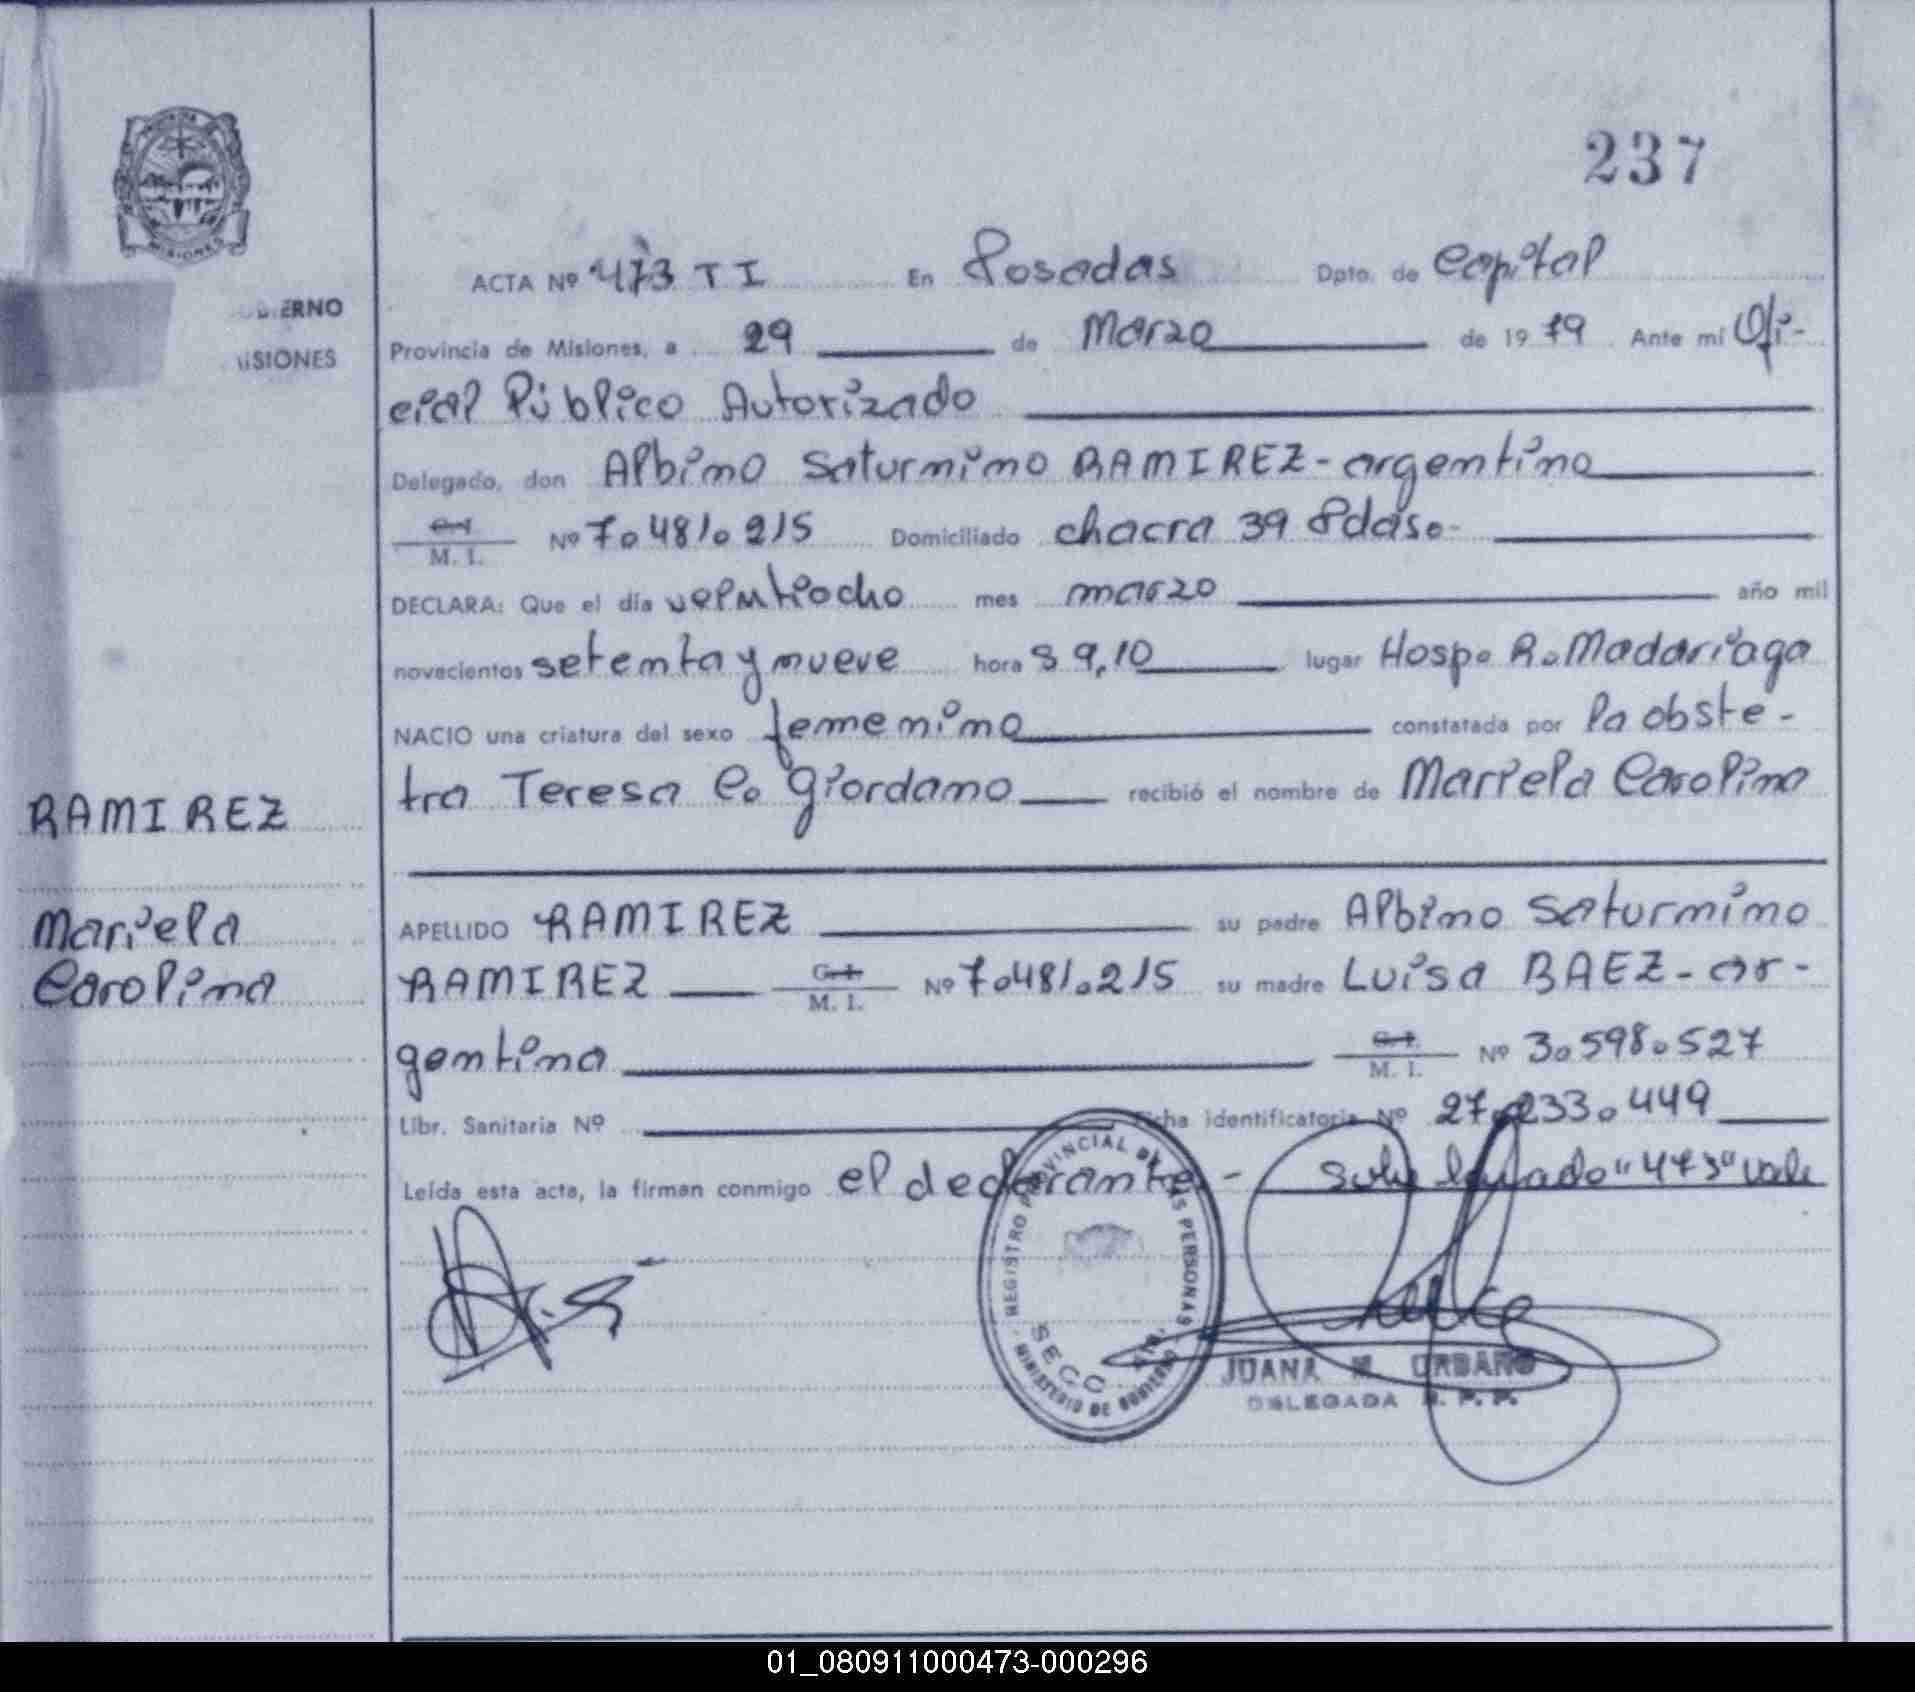 237
MISIONES
ACTA Nº 473 T I En Posadas Dpto. de Capital
ERNO
Provincia de Misiones, a 29 de Marzo de 1979 Ante mí Ofi-
ISIONES
cial Público Autorizado
Delegado, don Albino Saturnino RAMIREZ - argentino
C. I. M. I. Nº 7.481.215 Domiciliado chacra 39 Pdas.-
DECLARA: Que el día veintiocho mes marzo año mil
novecientos setenta y nueve hora s 9,10 lugar Hosp. R. Madariaga
NACIO una criatura del sexo femenino constatada por la obste-
tra Teresa C. Giordano recibió el nombre de Mariela Carolina
RAMIREZ
Mariela
Carolina
APELLIDO RAMIREZ su padre Albino Saturnino
RAMIREZ C. I. M. I. Nº 7.481.215 su madre Luisa BAEZ - ar-
gentina C. I. M. I. Nº 3.598.527
Libr. Sanitaria Nº Ficha identificatoria Nº 27.233.449
Leída esta acta, la firman conmigo el declarante.- Sobre borrado "473" vale
REGISTRO PROVINCIAL DE LAS PERSONAS
MINISTERIO DE GOBIERNO
SECC.
JUANA M. URBANO
DELEGADA R. P. P.
01_080911000473-000296